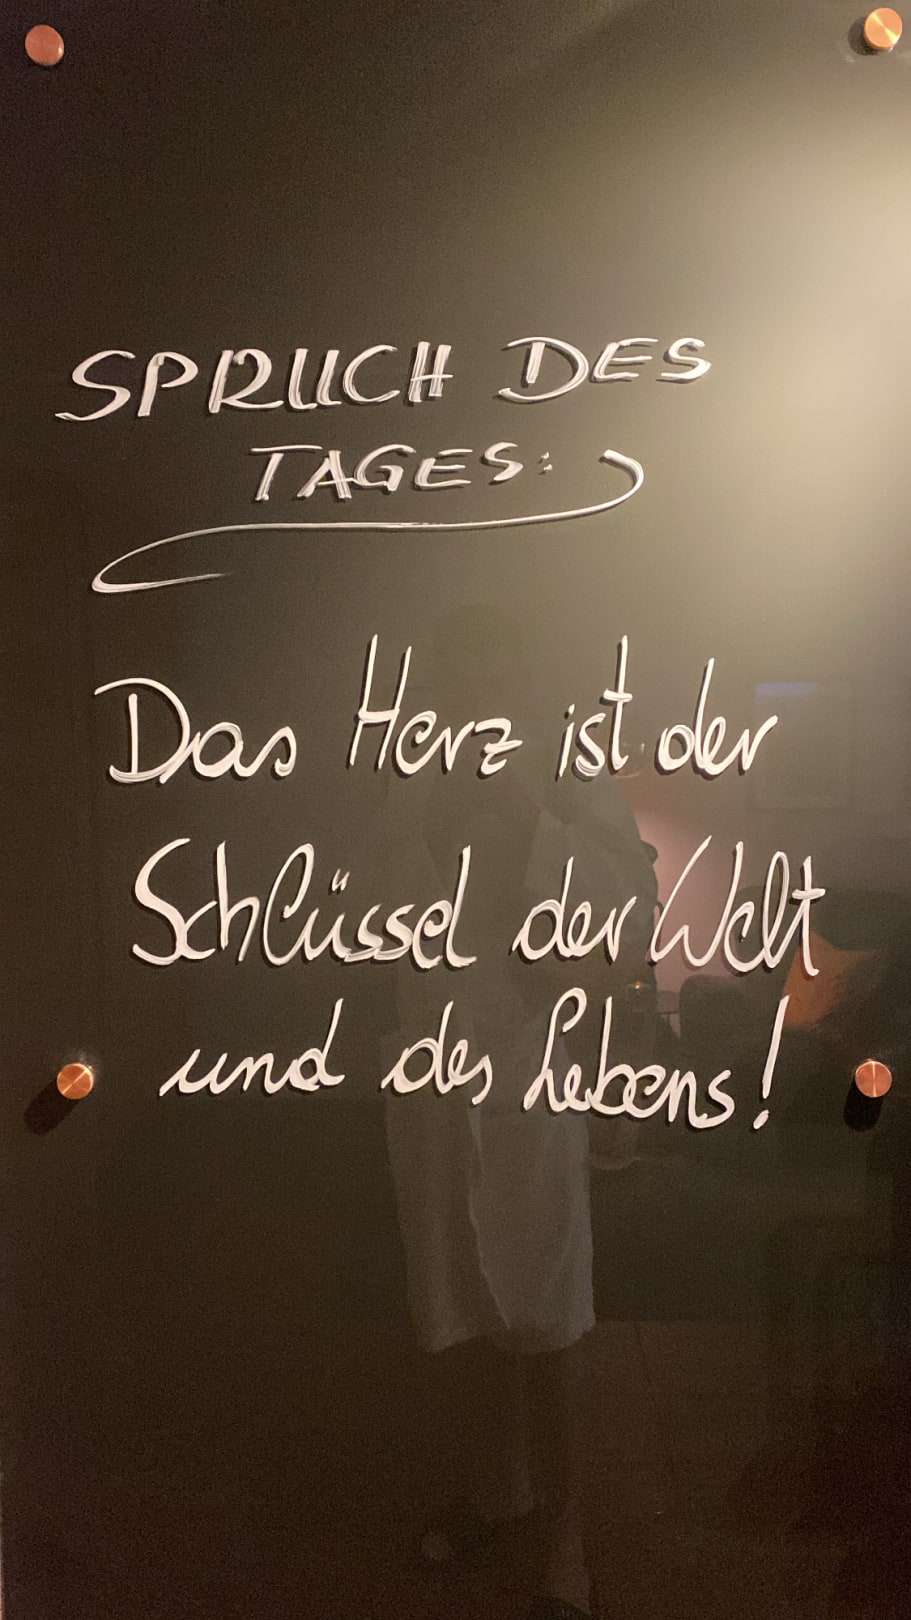 SPRUCH DES
TAGES:
Das Herz ist der
Schlüssel der Welt
und des Lebens!